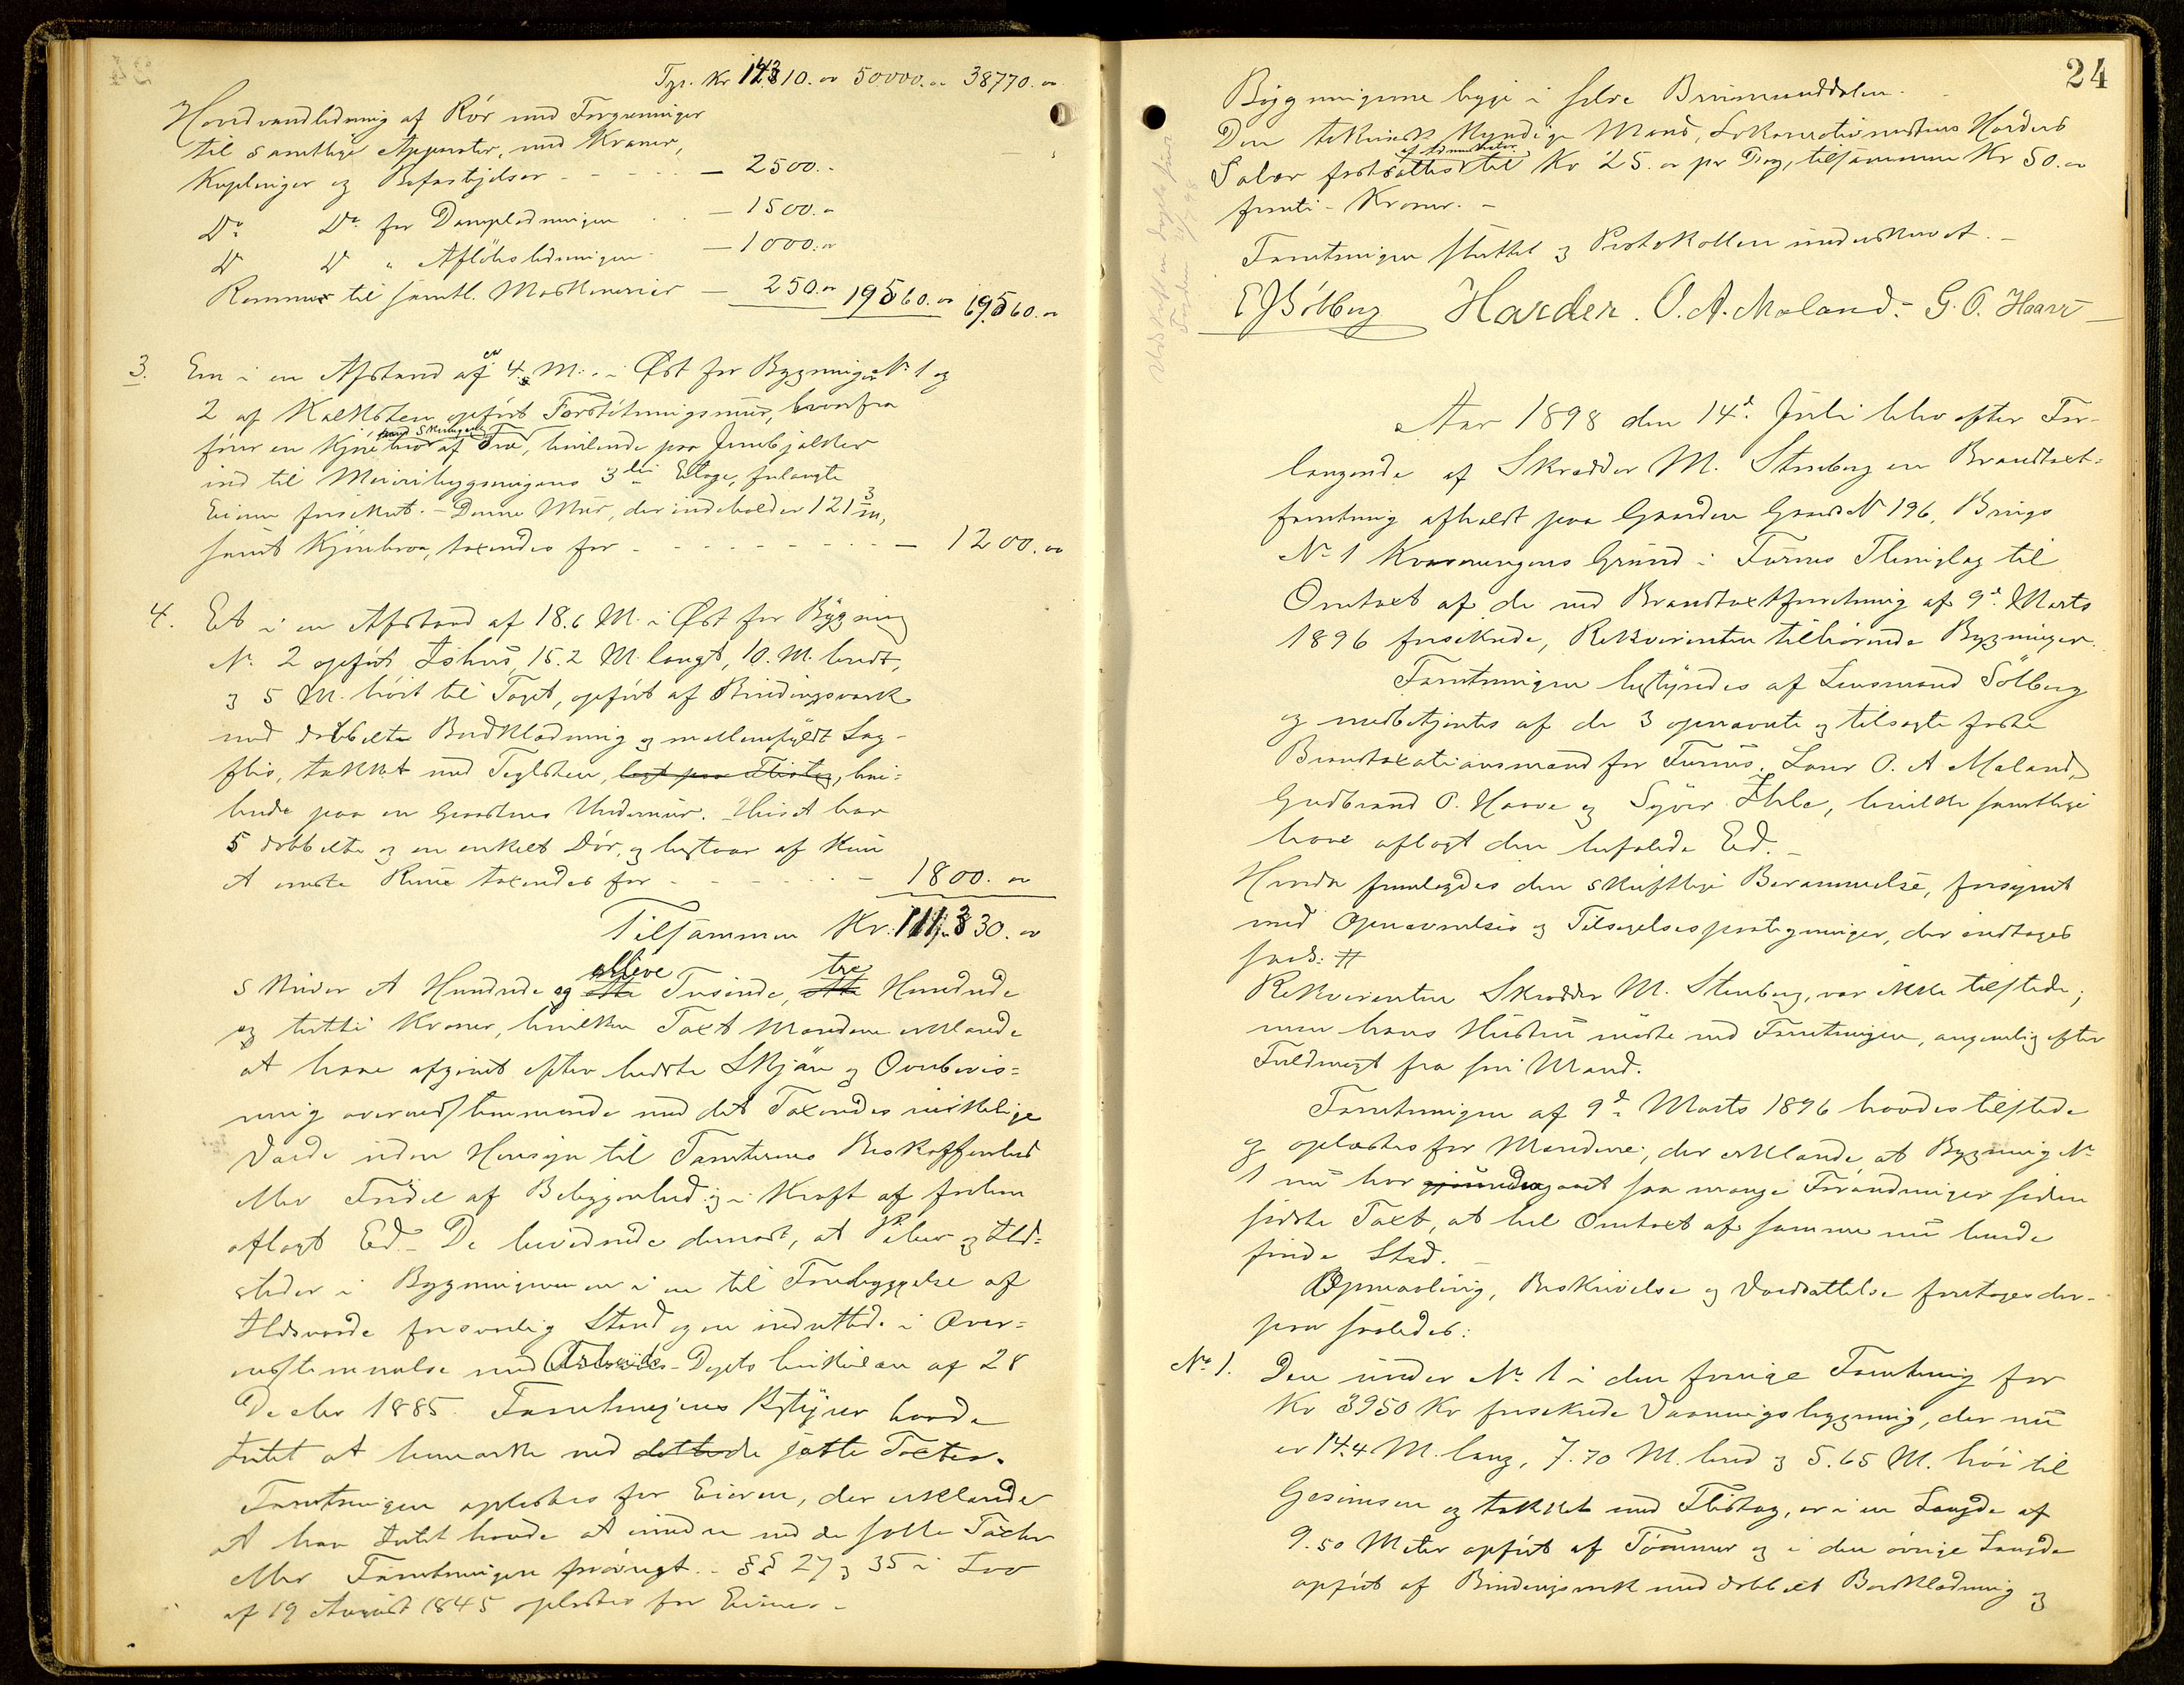 Tgr. Kr 14310.00 50000.00 38770.00
Hovedvandledning af Rör med Forgreninger
til samtlige Apparater, med Kraner,
Kuplinger og Befæstigelser - - - - - 2500.-
Do Do for Dampledningen - 1500.-
Do Do " Aflöbsledningen - 1000.00
Remmer til samtl. Maskinerier - 250.00 19560.00 69560.00
3. Em i en Afstand af 4. M. i Øst for Bygninger No 1 og
2 af Kalksten opfört Forstötningsmur, hvorfra
förer en Kjörebro med Skringer af Træ, hvilende paa Jernbjælker
ind til Meieribygningens 3die Etage, forlangte
Eieren forsikret. - Denne Mur, der indeholder 121 m3,
samt Kjörebroen, taxeredes for - - - - - - - - - 1200.00
4. Et i en Afstand af 18.6 M. i Øst for Bygning
No. 2 opfört Ishus, 15.2 M. langt, 10. M. bredt,
og 5 M. höit til Taget, opfört af Bindingsværk
med dobbelte Bordklædning og mellemfyldt Sag-
flis, tækket med Teglsten, lagt paa Flistag, hvi-
lende paa en Graastens Undermur. Huset har
5 dobbelte og en enkelt Dör, og bestaar af kun
et eneste Rum taxeredes for - - - - - - 1800.00
Tilsammen Kr. 111,330.00
skriver et Hundrede og otte elleve Tusinde, otte tre Hundrede
og tretti Kroner, hvilken Taxt Mændene erklærede
at have afgivet efter bedste Skjön og Overbevis-
ning overensstemmende med det Taxeredes virkelige
Værdi uden Hensyn til Tomternes Beskaffenhed
eller Fordel af Beliggenhed og i Kraft af forhen
aflagt Ed. - De bevidnede dernæst, at Piber og Ild-
steder i Bygningerne er i en til Forebyggelse af
Ildsvaade forsvarlig Stand og er indrettede i Over-
ensstemmelse med Arbeids-Depts Cirkulære af 28
Decbr 1885. Forretningens Bestyrer havde
Intet at bemærke ved de satte Taxter.
Forretningen oplæstes for Eieren, der erklærede
at han Intet havde at erindre ved de satte Taxter
eller Forretningen forövrigt. - §§ 27 og 35 i Lov
af 19 August 1845 oplæstes for Eieren. -
24
Bygningerne ligge i selve Brumunddalen.
Den teknisk kyndige Mand, Lokomotivmester Harders
Salær fastsattes af Administrator til Kr 25.00 pr Dag, tilsammen Kr 50.00
femti - Kroner. -
Forretningen sluttet og Protokollen underskrevet. -
E J Sölberg Harder. O. A. Moland. - G. O. Haave
Aar 1898 den 14de Juli blev efter For-
langende af Skrædder M. Stenberg en Brandtaxt-
forretning afholdt paa Gaarden Gaards No 196, Brugs
No 1 Kværningens Grund i Furnes Thinglag til
Omtaxt af de ved Brandtaxtforretning af 9de Marts
1896 forsikrede, Rekvirenten tilhörende Bygninger.
Forretningen bestyredes af Lensmand Sölberg
og medbetjentes af de 3 opnævnte og tilsagte faste
Brandtaxationsmænd for Furnes, Lars O. A Moland,
Gudbrand O. Haave og Syver Ihle, hvilke samtlige
have aflagt den befalede Ed. -
Herda fremlagdes den skriftlige Berammelse, forsynet
med Opnævnelses og Tilsigelsespaategninger, der indtages
saal. #
Rekvirenten Skrædder M. Stenberg, var ikke tilstede;
men hans Hustru mödte ved Forretningen, angivelig efter
Fuldmagt fra sin Mand.
Forretningen af 9de Marts 1896 havdes tilstede
og oplæstes for Mændene, der erklærede at Bygning No
1 nu har undergaaet saa mange Forandringer siden
sidste Taxt, at hel Omtaxt af samme nu burde
finde Sted. -
Opmaaling, Beskrivelse og Værdsættelse foretoges der-
paa saaledes:
No 1. Den under No 1 i den forrige Forretning for
Kr 3950 Kr forsikrede Vaaningsbygning, der nu
er 14.4 M. lang, 7.70 M. bred og 5.65 M. höi til
Gesimsen og tækket med Flistag, er i en Længde af
9.50 Meter opfört af Tömmer og i den övrige Længde
opfört af Bindingsverk med dobbelt Bordklædning og